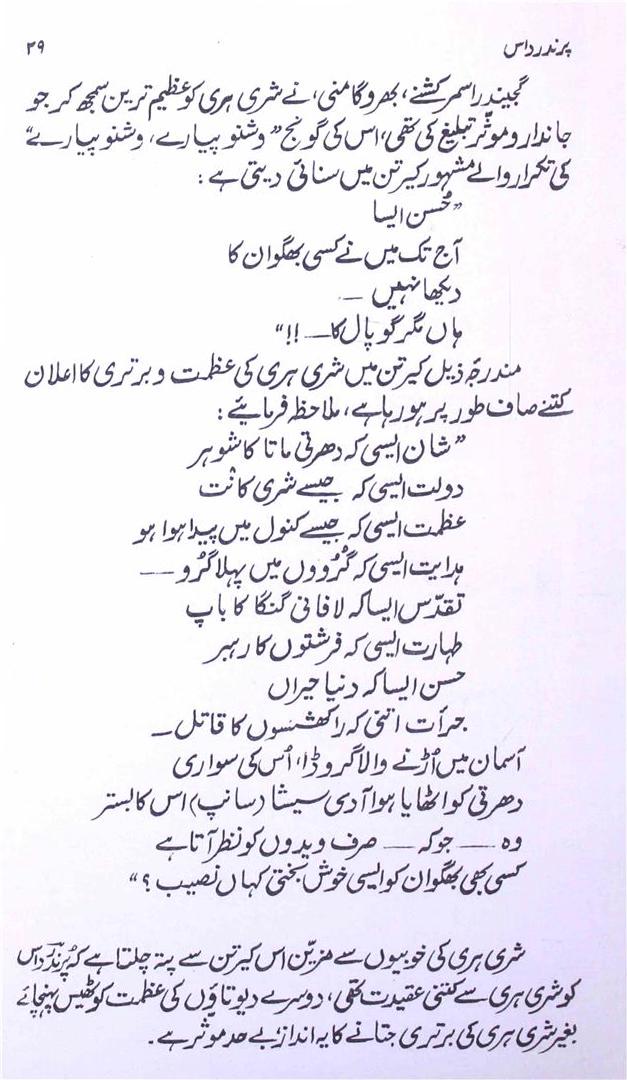 پرندرداس ۲۹
گجیندر اسمر کشنے، بھروگامنی، نے شری ہری کو عظیم ترین سمجھ کر جو
جاندار و موثّر تبلیغ کی تھی، اس کی گونج ”وشنو پیارے، وشنو پیارے“
کی تکرار والے مشہور کیرتن میں سنائی دیتی ہے:
”حُسن ایسا
آج تک میں نے کسی بھگوان کا
دیکھا نہیں —
ہاں مگر گوپال کا — !!“
مندرجۂ ذیل کیرتن میں شری ہری کی عظمت و برتری کا اعلان
کتنے صاف طور پر ہو رہا ہے، ملاحظہ فرمائیے:
”شان ایسی کہ دھرتی ماتا کا شوہر
دولت ایسی کہ جیسے شری کانت
عظمت ایسی کہ جیسے کنول میں پیدا ہوا ہو
ہدایت ایسی کہ گُرووں میں پہلا گُرو —
تقدّس ایسا کہ لافانی گنگا کا باپ
طہارت ایسی کہ فرشتوں کا رہبر
حسن ایسا کہ دنیا حیراں
جرأت اتنی کہ راکھشسوں کا قاتل —
آسمان میں اُڑنے والا گروڈا، اُس کی سواری
دھرتی کو اٹھایا ہوا آدی سیشا (سانپ) اس کا بستر
وہ — جو کہ — صرف ویدوں کو نظر آتا ہے
کسی بھی بھگوان کو ایسی خوش بختی کہاں نصیب؟“
شری ہری کی خوبیوں سے مزیّن اس کیرتن سے پتہ چلتا ہے کہ پُرندرداس
کو شری ہری سے کتنی عقیدت تھی، دوسرے دیوتاؤں کی عظمت کو ٹھیس پہنچائے
بغیر شری ہری کی برتری جتانے کا یہ انداز بے حد موثّر ہے۔